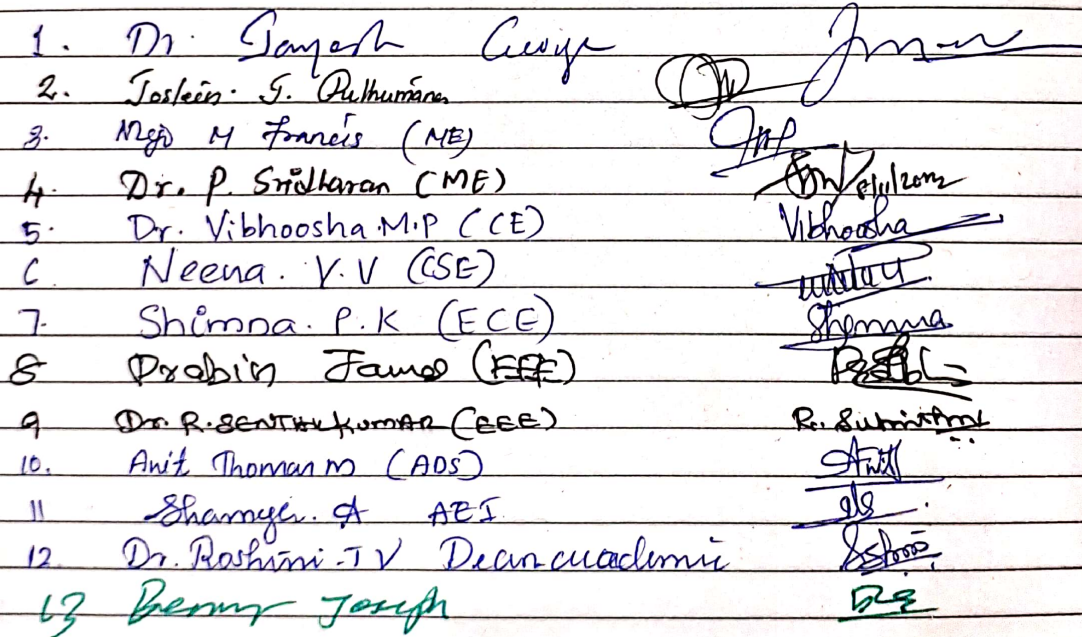 1. Dr. Jayesh George
2. Josleen. G. Puthumana
3. M Francis (ME)
4. Dr. P. Sridharan (ME)
5. Dr. Vibhoosha.M.P (CE) Vibhoosha
6 Neena. V.V (CSE)
7. Shimna. P.K (ECE) Shimna
8 Prabin James (EEE)
9 Dr. R. SENTHILKUMAR (EEE)
10. Anit Thomas M (ADS) Anit
11 Shamya. A AEI
12. Dr. Roshini. T V Dean academic
13 Benny Joseph